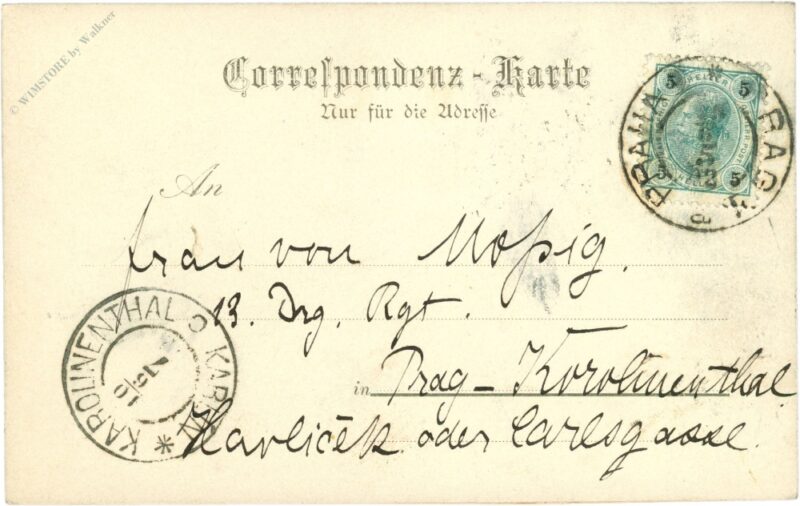 © WIMSTORE by Walkner
Correspondenz-Karte
Nur für die Adresse
PRAHA PRAG
5 5
5 5
An
Frau von Mossig.
13. Drg. Rgt.
in Prag-Karolinenthal
Havliček oder Carlsgasse.
KAROLINENTHAL KARLÍN